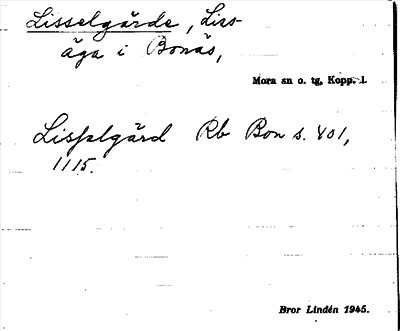 Lisselgårde, Liss-
äga i Bonäs,
Mora sn o. tg, Kopp. l.
Lisselgård Rb Bon s. 401,
1115.
Bror Lindén 1945.